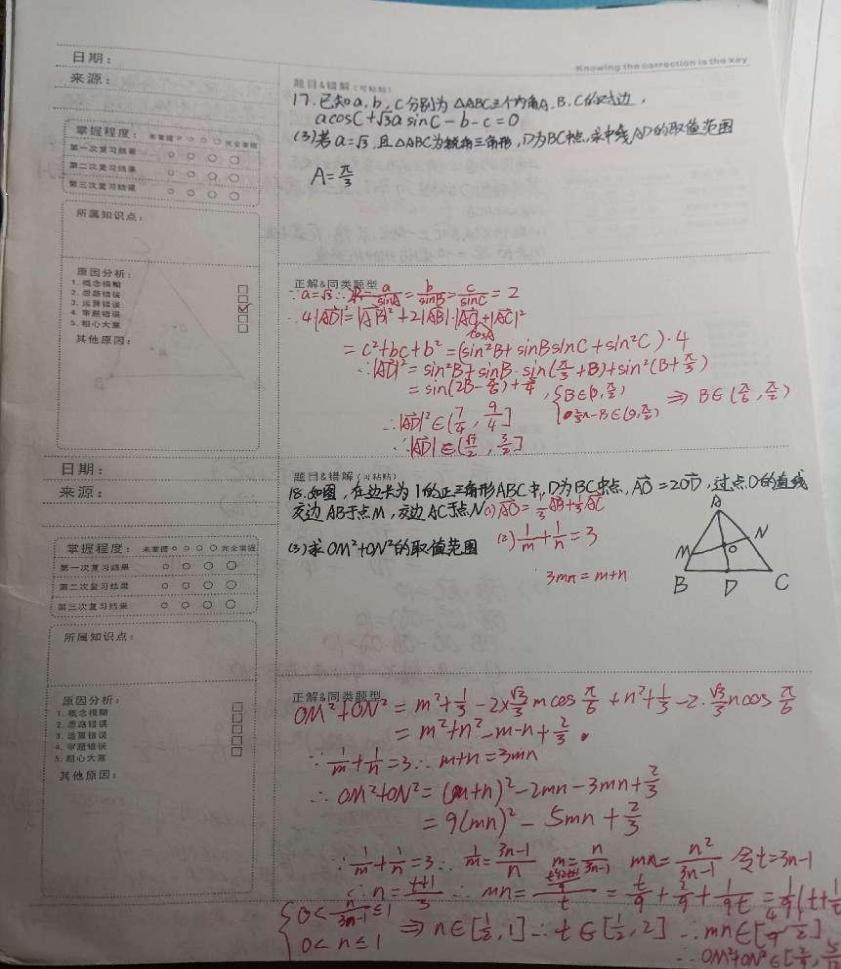 Knowing the correction is the key
日期：
来源：
题目&错解（可粘贴）
17.已知a,b,c分别为△ABC三个内角A,B,C的对边,
acosC+√3asinC-b-c=0
(3)若a=√3,且△ABC为锐角三角形,D为BC中点,求中线AD的取值范围
A=π/3
掌握程度：未掌握 ○ ○ ○ ○ 完全掌握
第一次复习结果 ○ ○ ○ ○
第二次复习结果 ○ ○ ○ ○
第三次复习结果 ○ ○ ○ ○
所属知识点：
原因分析：
1. 概念模糊
2. 思路错误
3. 运算错误
4. 审题错误
5. 粗心大意
其他原因：
正解&同类题型
∵a=√3∴ a/sinA=b/sinB=c/sinC=2
4|AD|²=|AB|²+2|AB|·|AC|cosA+|AC|²
=c²+bc+b²=(sin²B+sinBsinC+sin²C)·4
∴|AD|²=sin²B+sinB·sin(π/3+B)+sin²(B+π/3)
=sin(2B-π/6)+5/4, {B∈(0,π/2) ⇒ B∈(π/6,π/2)
2/3π-B∈(0,π/2)
∴|AD|²∈(7/4,9/4]
∴|AD|∈(√7/2,3/2]
日期：
来源：
题目&错解（可粘贴）
18.如图,在边长为1的正三角形ABC中,D为BC中点,AO=2OD,过点O的直线
交边AB于点M,交边AC于点N (1)AO=1/3AB+1/3AC
(3)求OM²+ON²的取值范围 (2)1/m+1/n=3
3mn=m+n
A
M
O
N
B D C
掌握程度：未掌握 ○ ○ ○ ○ 完全掌握
第一次复习结果 ○ ○ ○ ○
第二次复习结果 ○ ○ ○ ○
第三次复习结果 ○ ○ ○ ○
所属知识点：
原因分析：
1. 概念模糊
2. 思路错误
3. 运算错误
4. 审题错误
5. 粗心大意
其他原因：
正解&同类题型
OM²+ON²=m²+1/3-2×√3/3mcosπ/6+n²+1/3-2·√3/3ncosπ/6
=m²+n²-m-n+2/3.
∵1/m+1/n=3∴m+n=3mn
∴OM²+ON²=(m+n)²-2mn-3mn+2/3
=9(mn)²-5mn+2/3
∵1/m+1/n=3∴1/m=3n-1/n m=n/3n-1 mn=n²/3n-1 令t=3n-1
∴n=t+1/3 ∴mn=t²+2t+1/9/t=t/9+2/9+1/9t=1/9(t+1/t
{0<n/3n-1≤1 ⇒n∈[1/2,1]∴t∈[1/2,2]∴mn∈[4/9,1/2]
0<n≤1
∴OM²+ON²∈[2/9,5/12